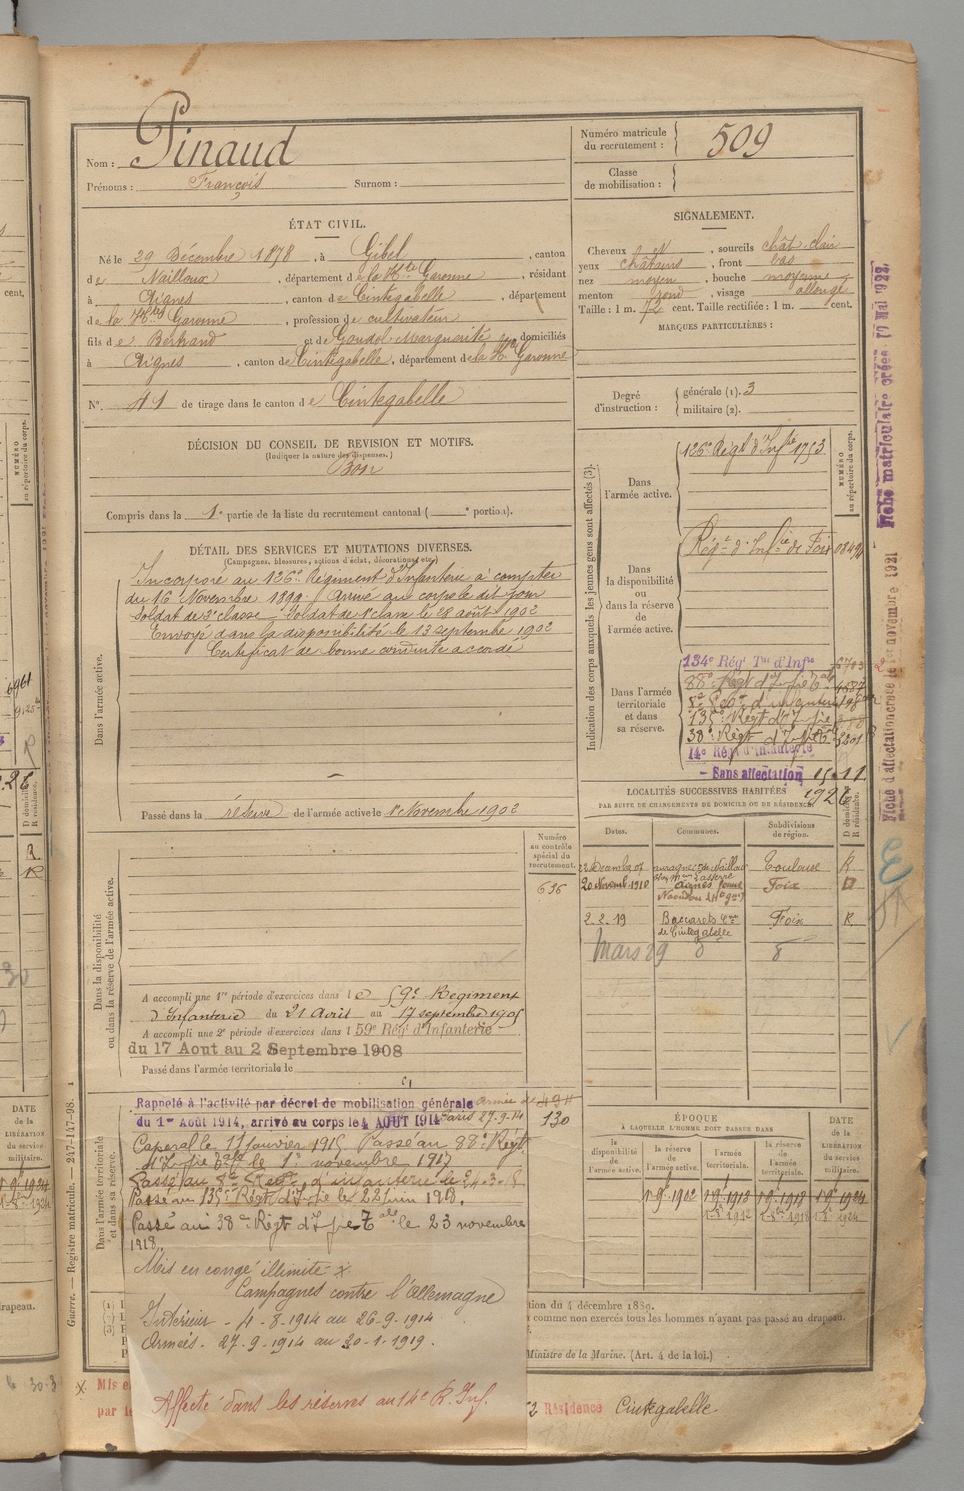 Nom : Pinaud
Prénoms : François Surnom :
Numéro matricule du recrutement : 509
Classe de mobilisation :
ÉTAT CIVIL.
Né le 29 Décembre 1878, à Gibel, canton
de Nailloux, département de la Hte Garonne, résidant
à Aignes, canton de Cintegabelle, département
de la Hte Garonne, profession de cultivateur
fils de Bertrand et de Goudol Marguerite domiciliés
à Aignes, canton de Cintegabelle, département de la Hte Garonne
N°. 41 de tirage dans le canton de Cintegabelle
SIGNALEMENT.
Cheveux et , sourcils chât. clair
yeux châtains, front bas
nez moyen, bouche moyenne
menton rond, visage allongé
Taille : 1 m. 72 cent. Taille rectifiée : 1 m. cent.
MARQUES PARTICULIÈRES :
Degré d'instruction : générale (1). 3
militaire (2).
DÉCISION DU CONSEIL DE REVISION ET MOTIFS.
(Indiquer la nature des dispenses.)
Bon
Compris dans la 1e partie de la liste du recrutement cantonal ( e portion).
DÉTAIL DES SERVICES ET MUTATIONS DIVERSES.
(Campagnes, blessures, actions d'éclat, décorations, etc.)
Dans l'armée active.
Incorporé au 126e Régiment d'Infanterie à compter
du 16 Novembre 1899. Arrivé au corps le dit jour
Soldat de 2e classe. Soldat de 1e classe le 28 août 1902
Envoyé dans la disponibilité le 13 septembre 1902
Certificat de bonne conduite accordé
Passé dans la réserve de l'armée active le 1er Novembre 1902
Indication des corps auxquels les jeunes gens sont affectés (3).
NUMÉRO au répertoire du corps.
Dans l'armée active.
126e Régt d'Infrie 1753
Dans la disponibilité ou dans la réserve de l'armée active.
Régt d'Infie de Foix
Dans l'armée territoriale et dans sa réserve.
134e Régt Tal d'Infie
88e Régt d'Infie Tale
135e Régt d'Infie
38e Régt d'Infie Tale
14e Régt d'Infanterie
- Sans affectation 15.11
1926
LOCALITÉS SUCCESSIVES HABITÉES
PAR SUITE DE CHANGEMENTS DE DOMICILE OU DE RÉSIDENCE.
Dates. Communes. Subdivisions de région. D domicile. R résidence.
Toulouse R
20 Novemb 1910 Aignes Foix D
2.2.19 Baccarets Cne de Cintegabelle Foix R
Mars 29 d° d°
Numéro au contrôle spécial du recrutement.
636
Dans la disponibilité ou dans la réserve de l'armée active.
A accompli une 1re période d'exercices dans le 59e Régiment
d'Infanterie du 21 Avril au 17 septembre 1905
A accompli une 2e période d'exercices dans l 59e Rég' d'Infanterie
du 17 Aout au 2 Septembre 1908
Passé dans l'armée territoriale le
Dans l'armée territoriale et dans sa réserve.
Rappelé à l'activité par décret de mobilisation générale
du 1er Août 1914, arrivé au corps le 4 AOUT 1914
130
Caporal le 11 janvier 1915 Passé au 88e Régt
d'Infie Tale le 1er novembre 1917
Passé au 135e Régt d'Infie le 22 juin 1918.
Passé au 38e Régt d'Infie Tale le 23 novembre
1918.
Mis en congé illimité x
Campagnes contre l'Allemagne
Intérieur - 4-8-1914 au 26-9-1914
Armées - 27-9-1914 au 30-1-1919.
Affecté dans les réserves au 14e R. Inf.
ÉPOQUE
À LAQUELLE L'HOMME DOIT PASSER DANS
la disponibilité de l'armée active. la réserve de l'armée active. l'armée territoriale. la réserve de l'armée territoriale. DATE de la LIBÉRATION du service militaire.
1.9.1902 1.9.1912 1.9.1918 1.9.1924
tion du 4 décembre 1889.
comme non exercés tous les hommes n'ayant pas passé au drapeau.
Ministre de la Marine. (Art. 4 de la loi.)
Résidence Cintegabelle
Guerre. — Registre matricule. — 247-147-98.
Fiche matriculaire créée 10 Mai 1922
Fiche d'affectation créée le 1er novembre 1921